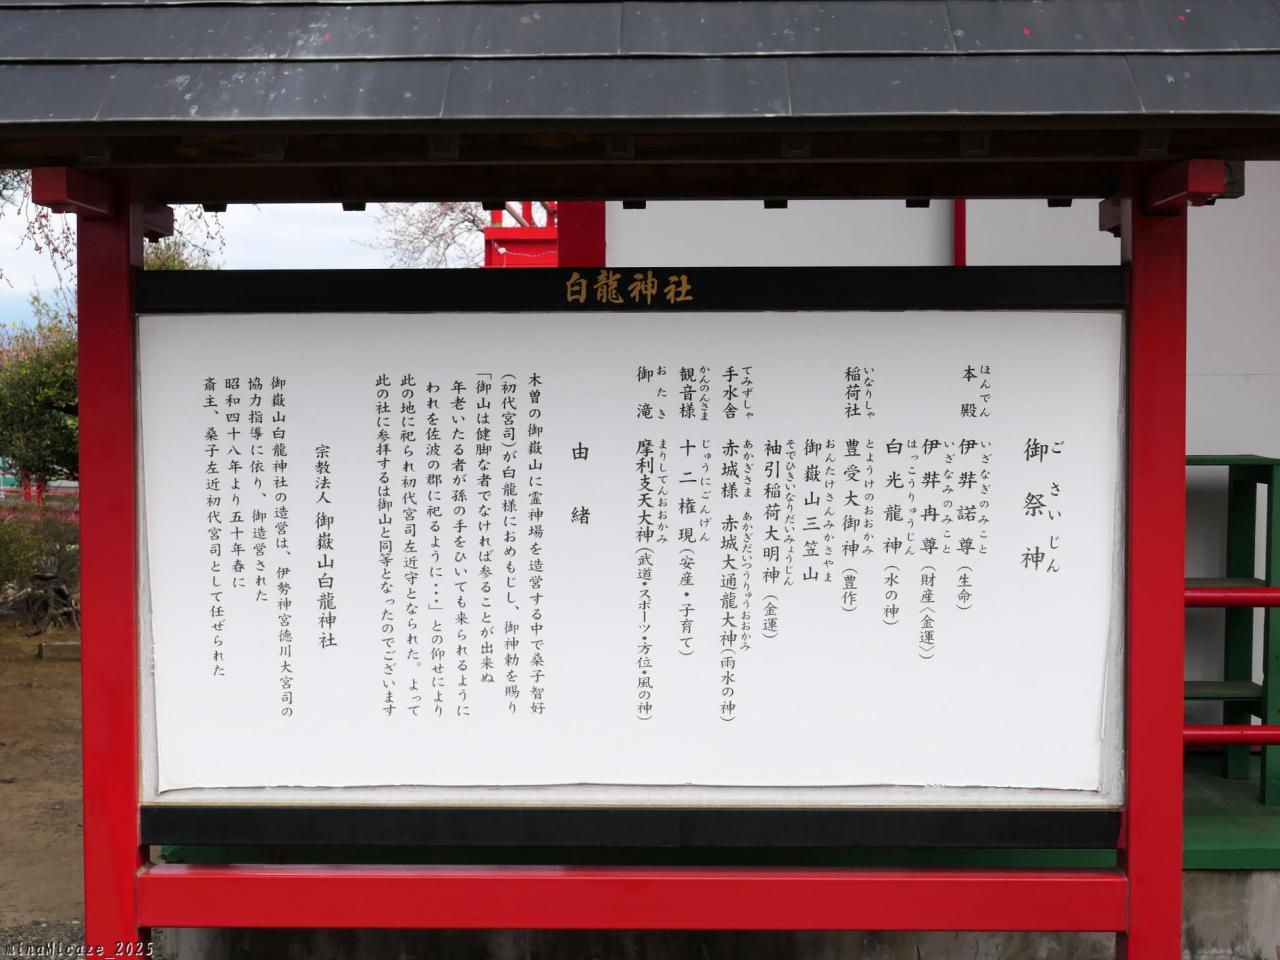 白龍神社
御祭神
ごさいじん
本殿 伊弉諾尊（生命）
ほんでん いざなぎのみこと
伊弉冉尊（財産〈金運〉）
いざなみのみこと
白光龍神（水の神）
はっこうりゅうじん
稲荷社 豊受大御神（豊作）
いなりしゃ とようけのおおかみ
御嶽山三笠山
おんたけさんみかさやま
袖引稲荷大明神（金運）
そでひきいなりだいみょうじん
手水舎 赤城様 赤城大通龍大神（雨水の神）
てみずしゃ あかぎさま あかぎだいつうりゅうおおかみ
観音様 十二権現（安産・子育て）
かんのんさま じゅうにごんげん
御滝 摩利支天大神（武道・スポーツ・方位・風の神）
おたき まりしてんおおかみ
由緒
木曽の御嶽山に霊神場を造営する中で桑子智好
（初代宮司）が白龍様におめもじし、御神勅を賜り
「御山は健脚な者でなければ参ることが出来ぬ
年老いたる者が孫の手をひいても来られるように
われを佐波の郡に祀るように・・・」との仰せにより
此の地に祀られ初代宮司左近守となられた。よって
此の社に参拝するは御山と同等となったのでございます
宗教法人 御嶽山白龍神社
御嶽山白龍神社の造営は、伊勢神宮徳川大宮司の
協力指導に依り、御造営された
昭和四十八年より五十年春に
斎主、桑子左近初代宮司として任ぜられた
minaMicaze_2025